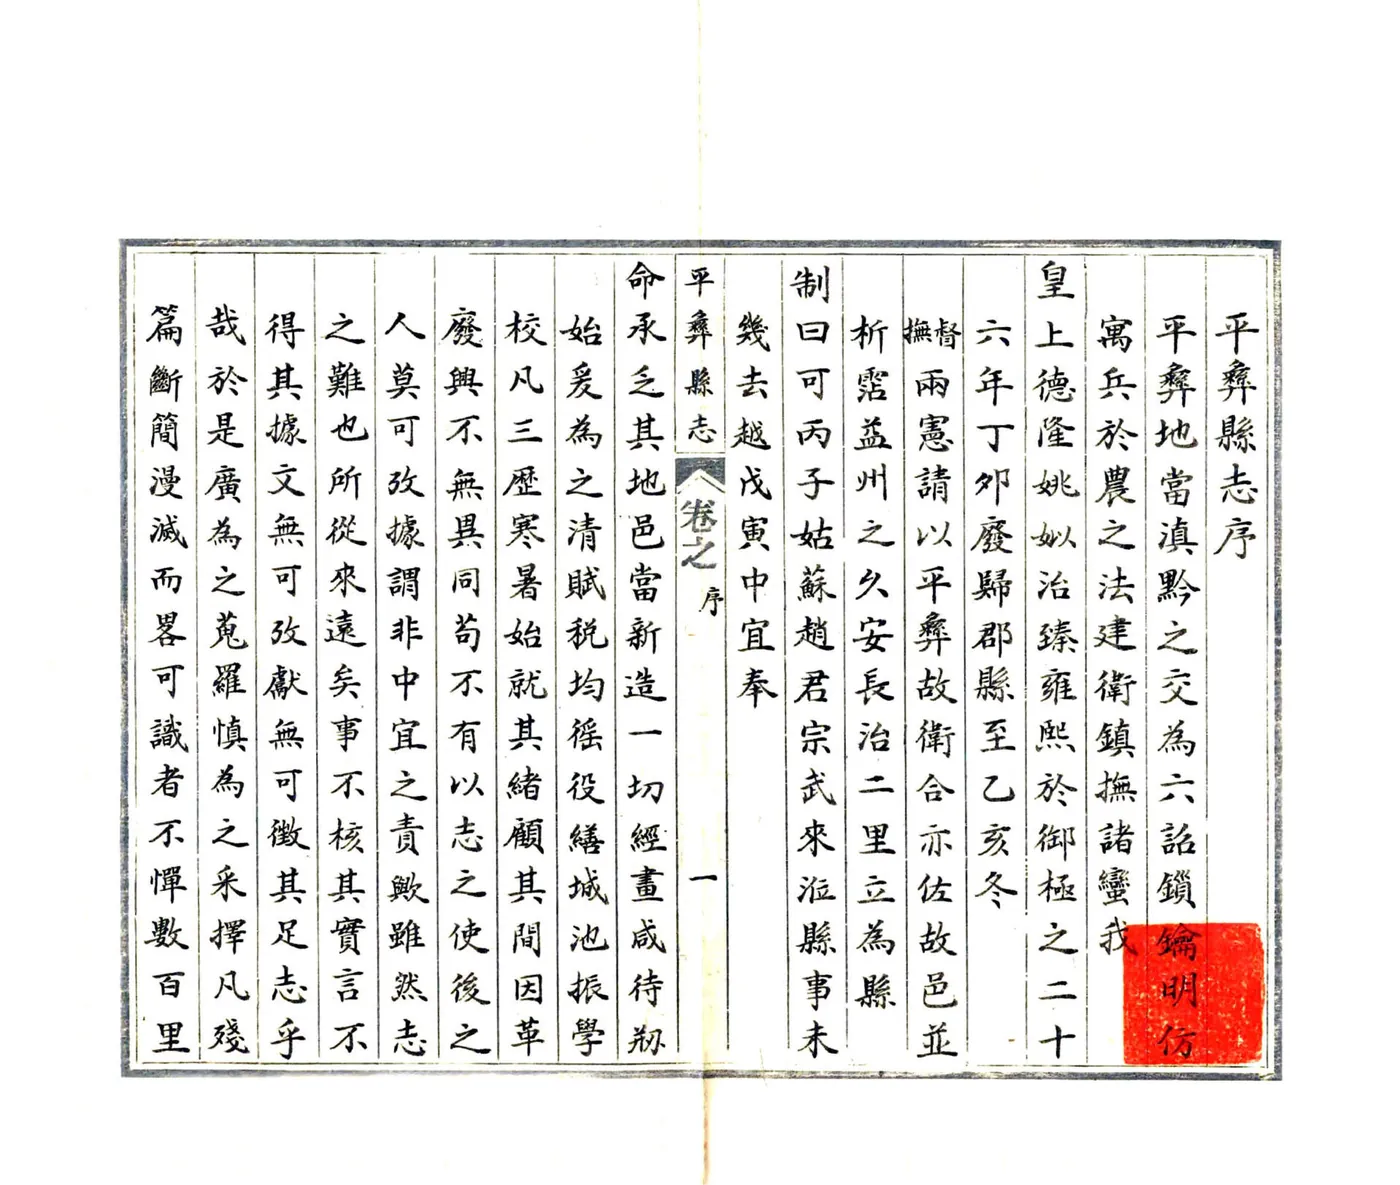 平彝縣志序
平彝地當滇黔之交為六詔鎖鑰明仿
寓兵於農之法建衛鎮撫諸蠻我
皇上德隆姚姒治臻雍熙於御極之二十
六年丁夘廢歸郡縣至乙亥冬
督撫兩憲請以平彝故衛合亦佐故邑並
析霑益州之久安長治二里立為縣
制曰可丙子姑蘇趙君宗武來涖縣事未
幾去越戊寅中宜奉
平彝縣志
卷之
序
一
命承乏其地邑當新造一切經畫咸待刱
始爰為之清賦稅均徭役繕城池振學
校凡三歷寒暑始就其緒顧其間因革
廢興不無異同苟不有以志之使後之
人莫可攷據謂非中宜之責歟雖然志
之難也所從來遠矣事不核其實言不
得其據文無可攷獻無可徵其足志乎
哉於是廣為之蒐羅慎為之采擇凡殘
篇斷簡漫滅而畧可識者不憚數百里